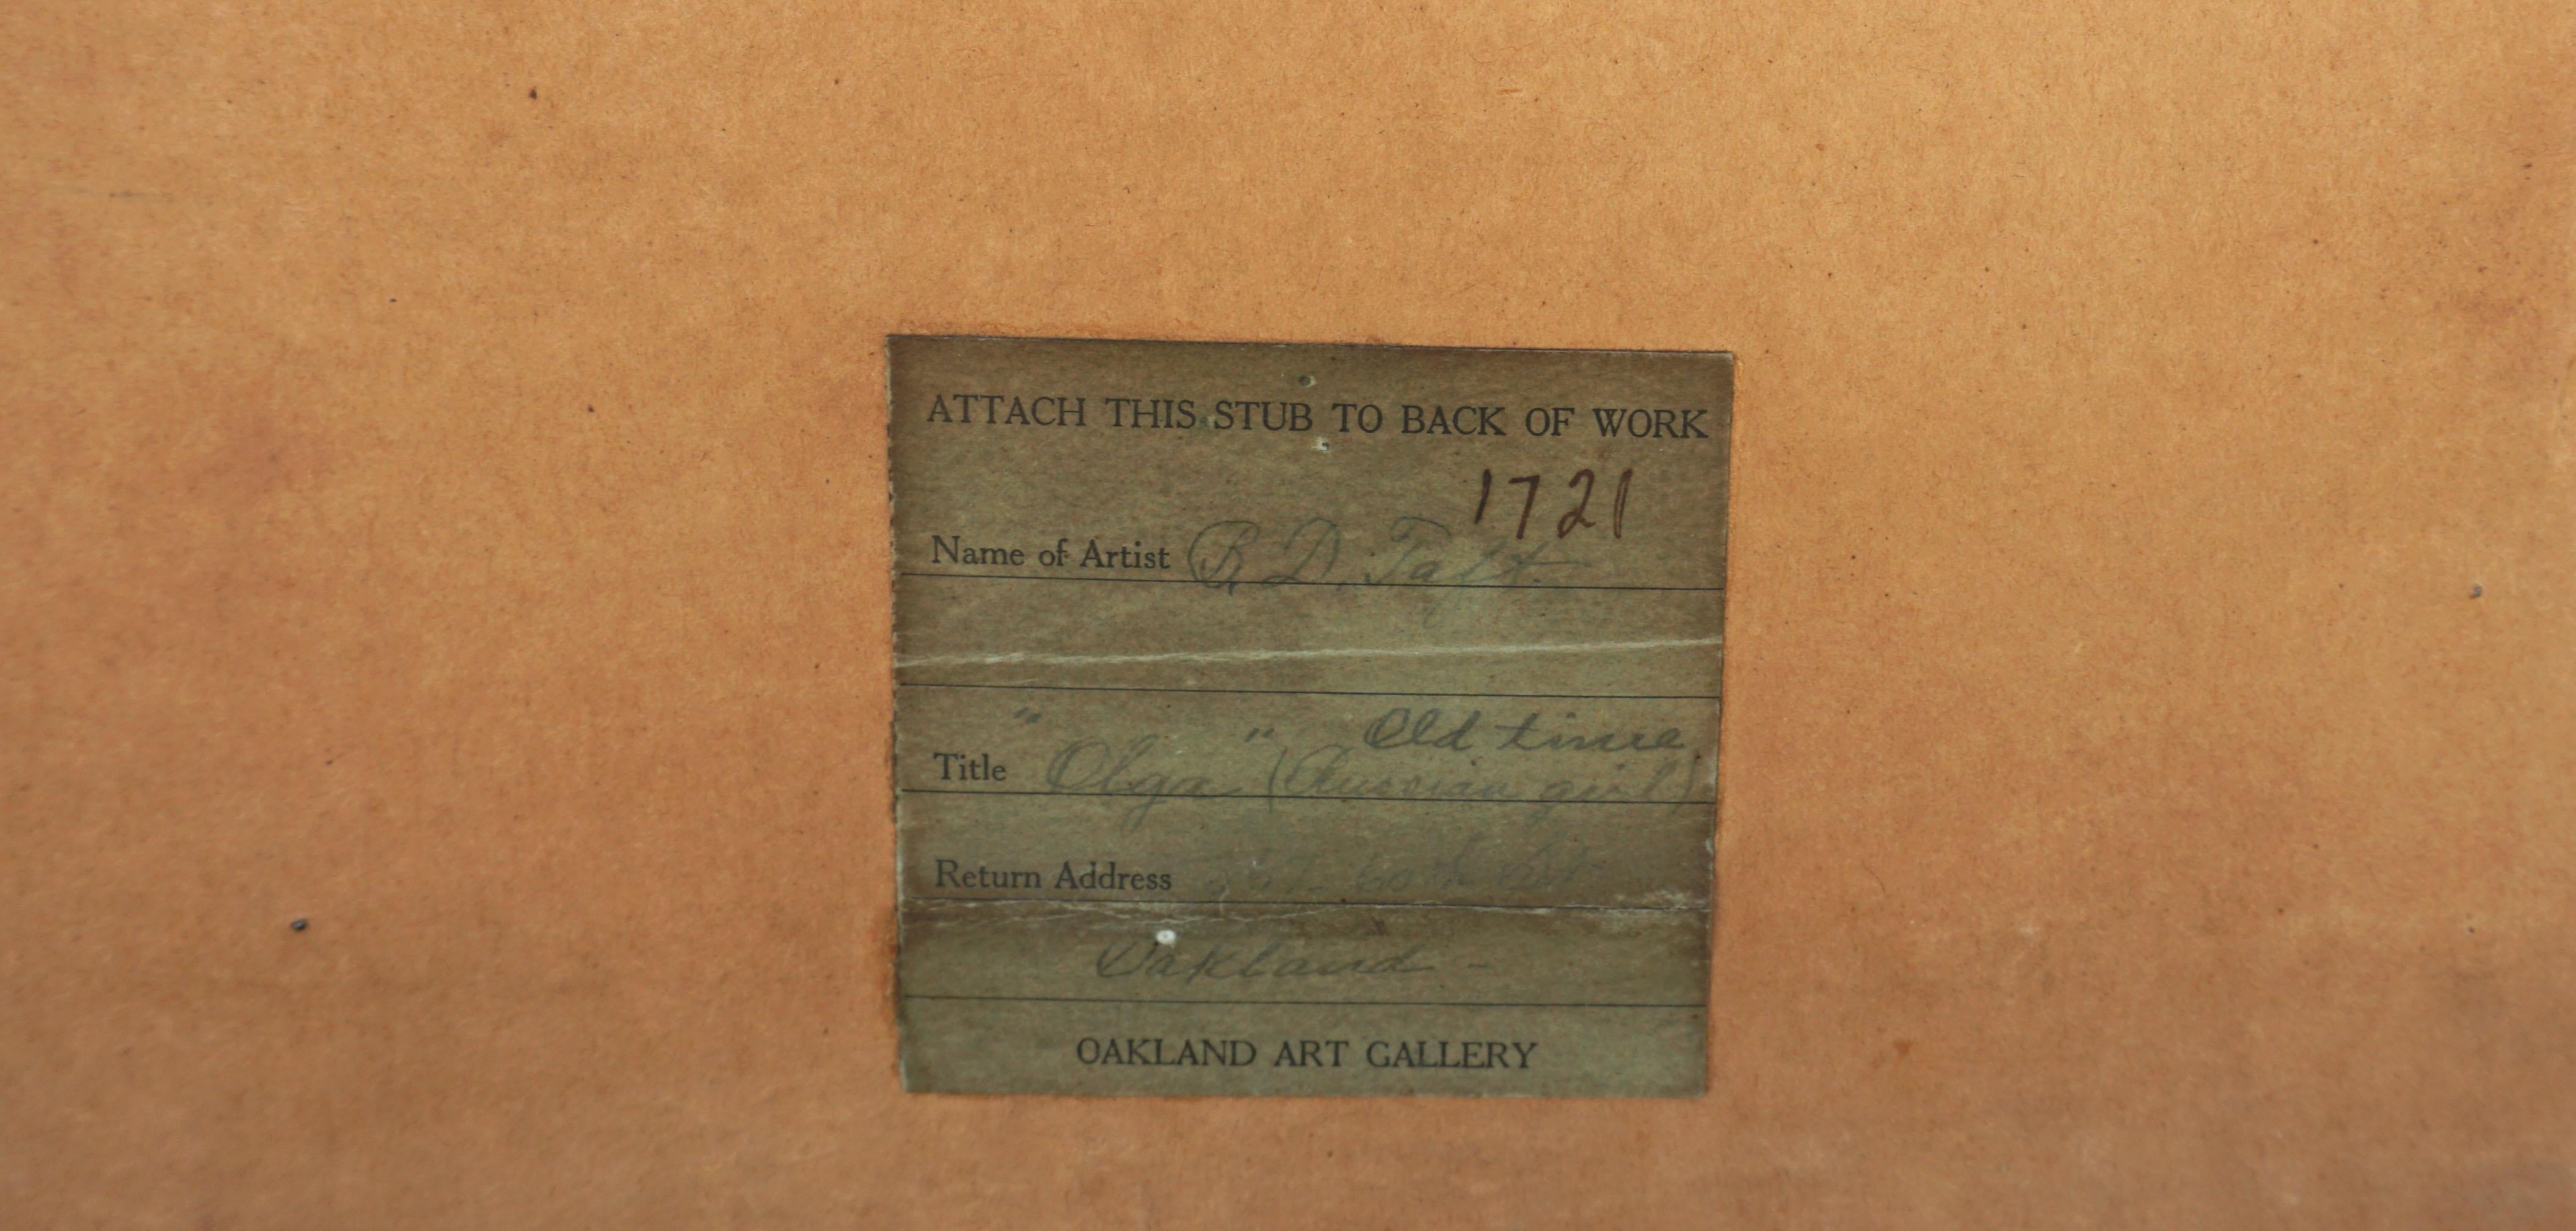 ATTACH THIS STUB TO BACK OF WORK
1721
Name of Artist R. D. Taft.
Old time
Title "Olga" (Russian girl)
Return Address 60th St
Oakland -
OAKLAND ART GALLERY